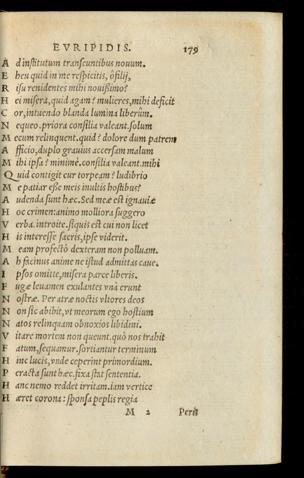 EVRIPIDIS. 179
A d institutum transeuntibus nouum.
E heu quid in me respicitis, ô filij,
R isu renidentes mihi nouissimo?
H ei misera, quid agam? mulieres, mihi deficit
C or, intuendo blanda lumina liberûm.
N equeo. priora consilia valeant. solum
M ecum relinquent. quid? dolore dum patrem
A fficio, duplo grauius accersam malum
M ihi ipsa? minimè. consilia valeant. mihi
Q uid contigit cur torpeam? ludibrio
M e patiar esse meis inultis hostibus?
A udenda sunt hæc. Sed meæ est ignauiæ
H oc crimen: animo molliora suggero
V erba. introite. siquis est cui non licet
H is interesse sacris, ipse viderit.
M eam profectò dexteram non polluam.
A h facinus anime ne istud admittas caue.
I psos omitte, misera parce liberis.
F ugæ leuamen exulantes vnà erunt
N ostræ. Per atræ noctis vltores deos
N on sic abibit, vt meorum ego hostium
N atos relinquam obnoxios libidini.
V itare mortem non queunt. quò nos trahit
F atum, sequamur. sortiantur terminum
H inc lucis, vnde ceperint primordium.
P eracta sunt hæc. fixa stat sententia.
H anc nemo reddet irritam. iam vertice
H æret corona: sponsa peplis regia
M 2 Perit